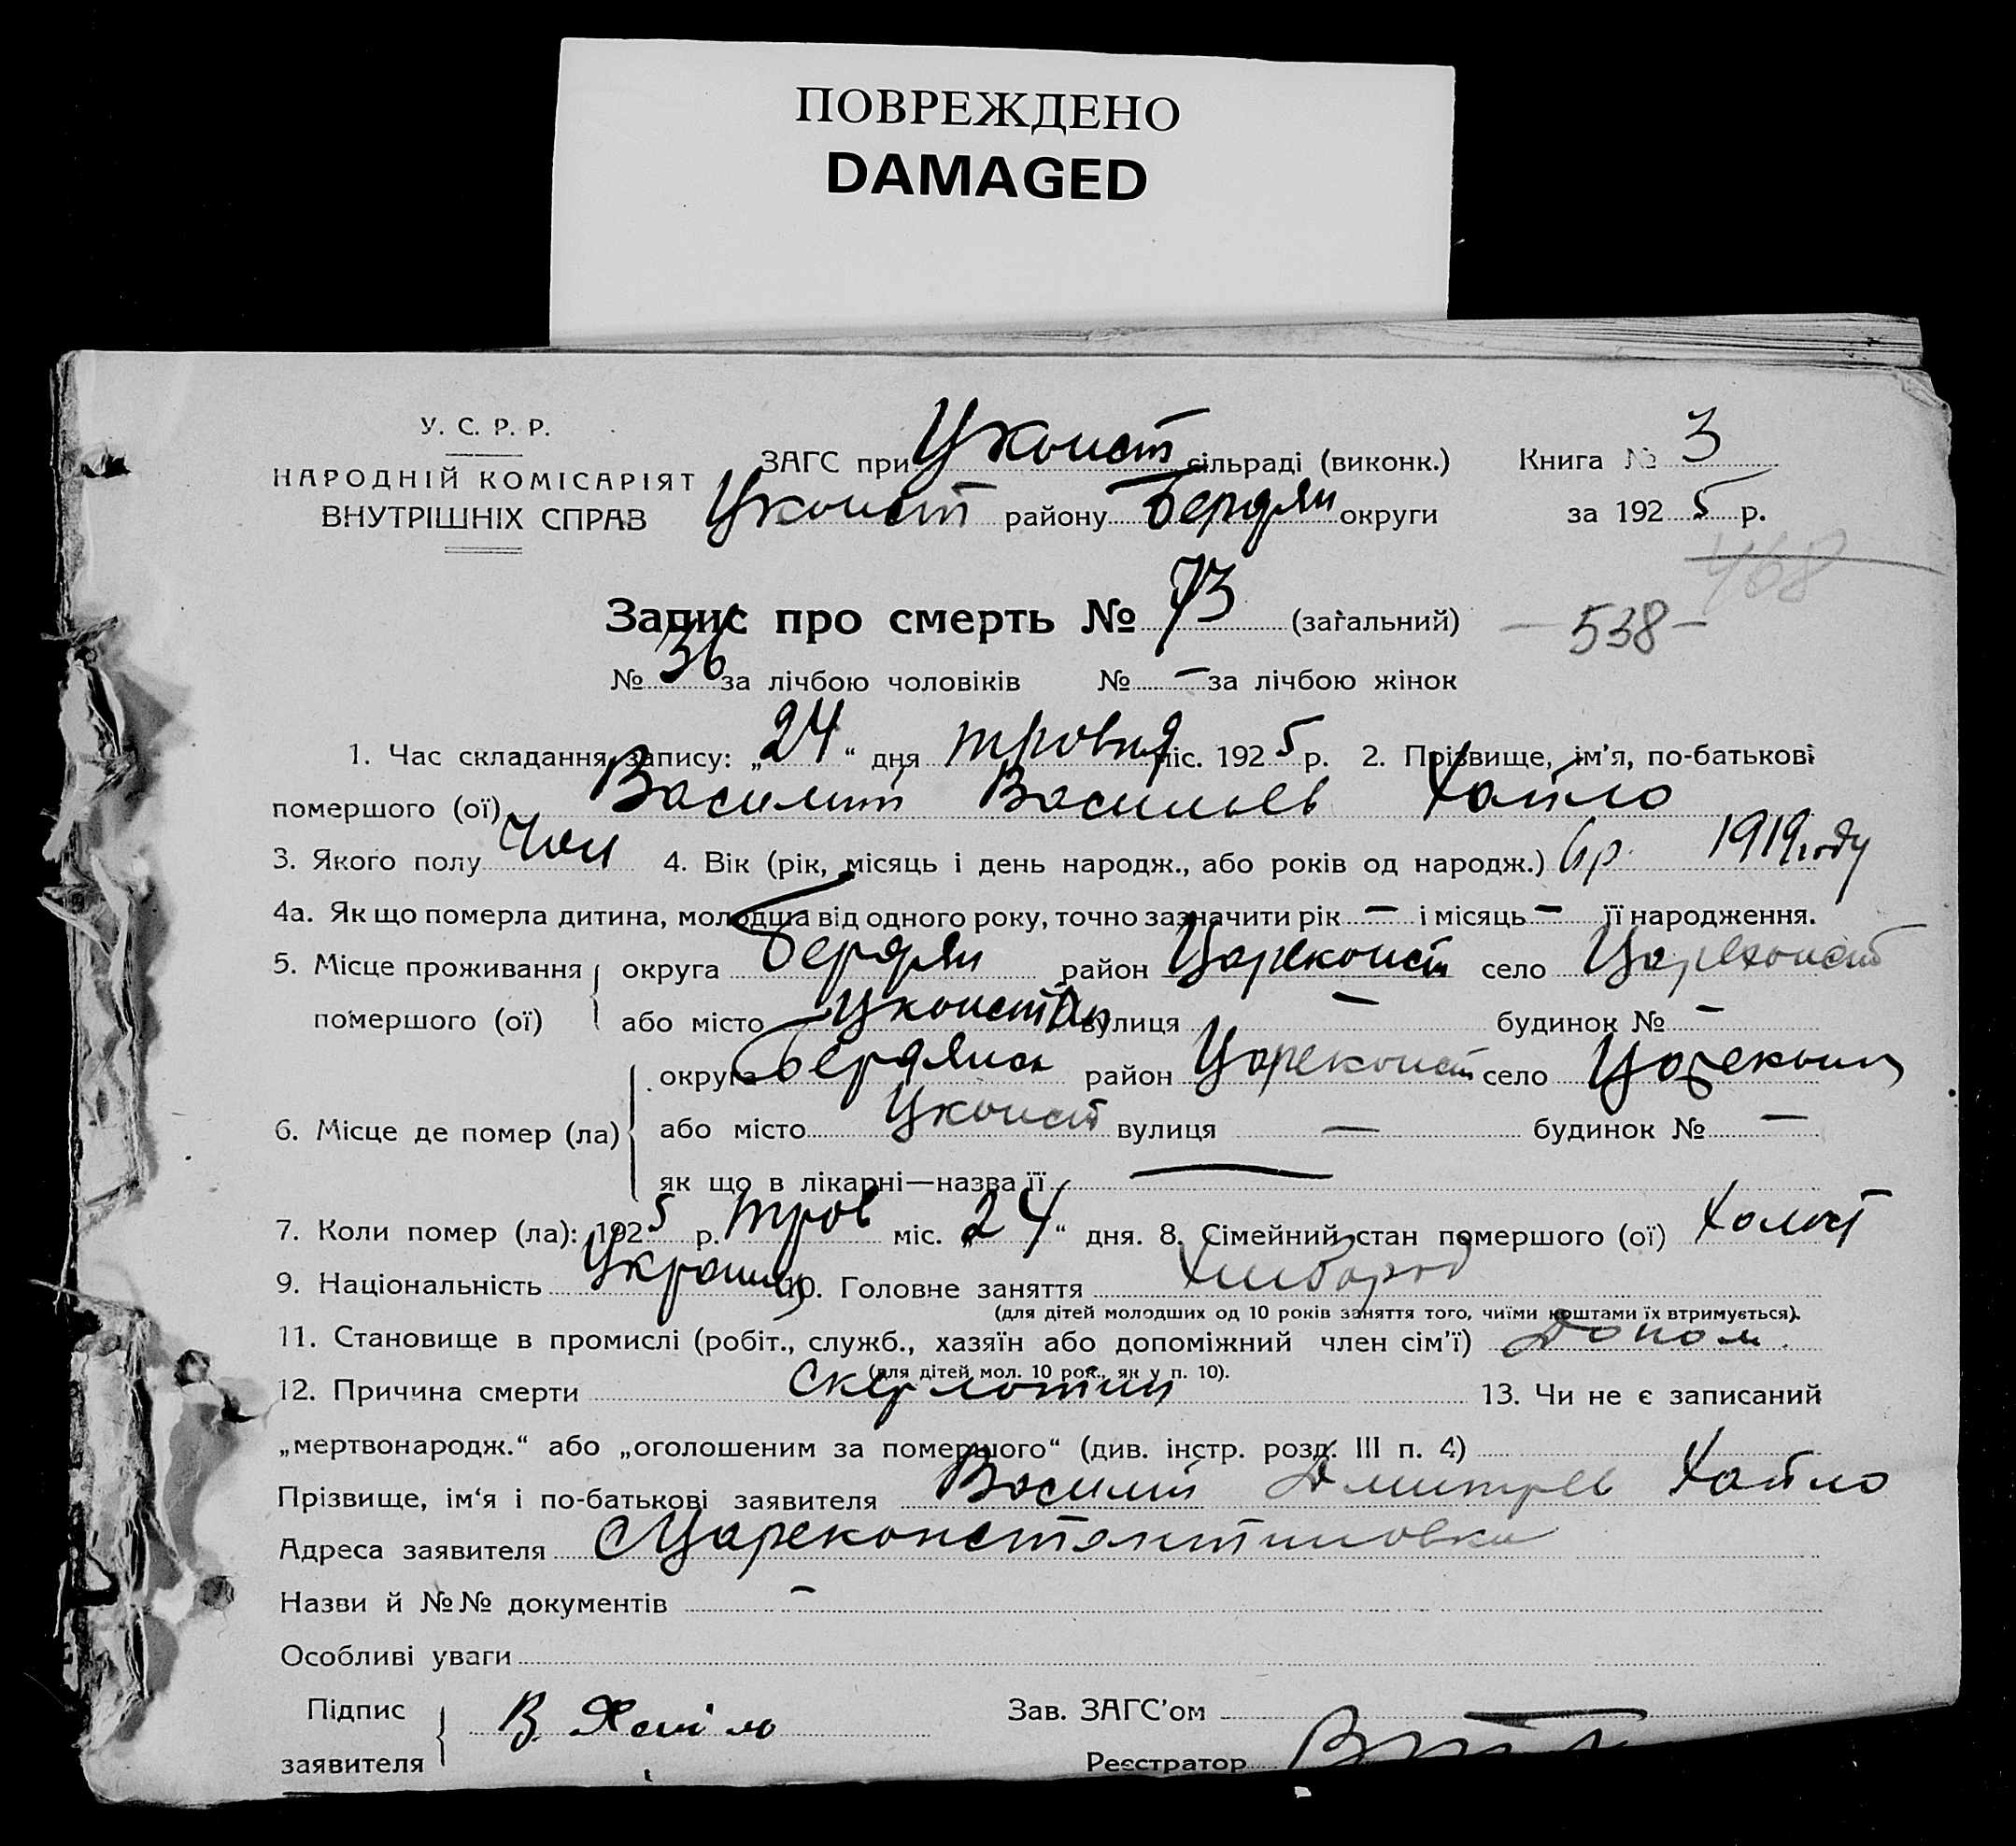 ПОВРЕЖДЕНО
DAMAGED
У. С. Р. Р.
НАРОДНІЙ КОМІСАРІЯТ
ВНУТРІШНІХ СПРАВ
ЗАГС при Цконст сільраді (виконк.) Книга № 3
Цконст району Бердян округи за 1925 р.
468
Запис про смерть № 73 (загальний) — 538 —
№ 36 за лічбою чоловіків № — за лічбою жінок
1. Час складання запису: „24“ дня тровня міс. 1925 р. 2. Прізвище, ім'я, по-батькові
помершого (ої) Василий Васильев Хайло
3. Якого полу Чол 4. Вік (рік, місяць і день народж., або років од народж.) 6 р. 1919 году
4а. Як що померла дитина, молодша від одного року, точно зазначити рік — і місяць — її народження.
5. Місце проживання помершого (ої) округа Бердян район Цареконст село Цареконст
або місто Цконстан вулиця — будинок № —
6. Місце де помер (ла) округа Бердянск район Цареконст село Цареконст
або місто Цконст вулиця — будинок № —
як що в лікарні—назва її —
7. Коли помер (ла): 1925 р. тров міс. „24“ дня. 8. Сімейний стан помершого (ої) Холост
9. Національність Украинец 10. Головне заняття Хлибороб
(для дітей молодших од 10 років заняття того, чиїми коштами їх втримується).
11. Становище в промислі (робіт., служб., хазяїн або допоміжний член сім'ї) Допом.
(для дітей мол. 10 рок., як у п. 10).
12. Причина смерти Скерлотин 13. Чи не є записаний
„мертвонародж.“ або „оголошеним за помершого“ (див. інстр. розд. III п. 4)
Прізвище, ім'я і по-батькові заявителя Василий Дмитрев Хайло
Адреса заявителя Цареконстантиновка
Назви й №№ документів —
Особливі уваги
Підпис заявителя В Хайло Зав. ЗАГС'ом
Реєстратор